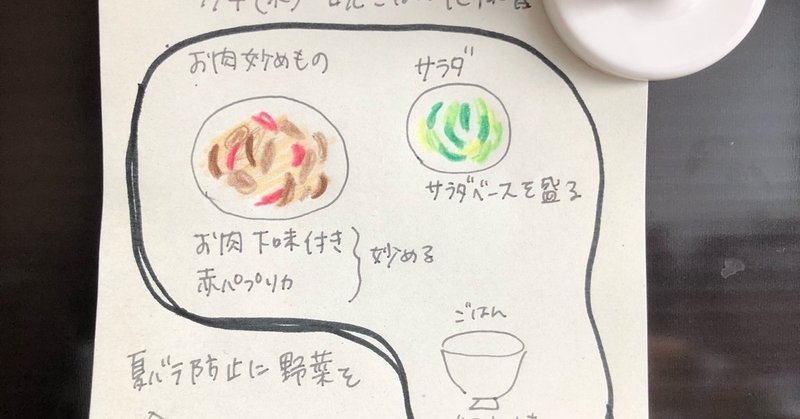 お肉炒めもの
サラダ
サラダベースを盛る
お肉下味付き
赤パプリカ
炒める
ごはん
夏バテ防止に野菜を